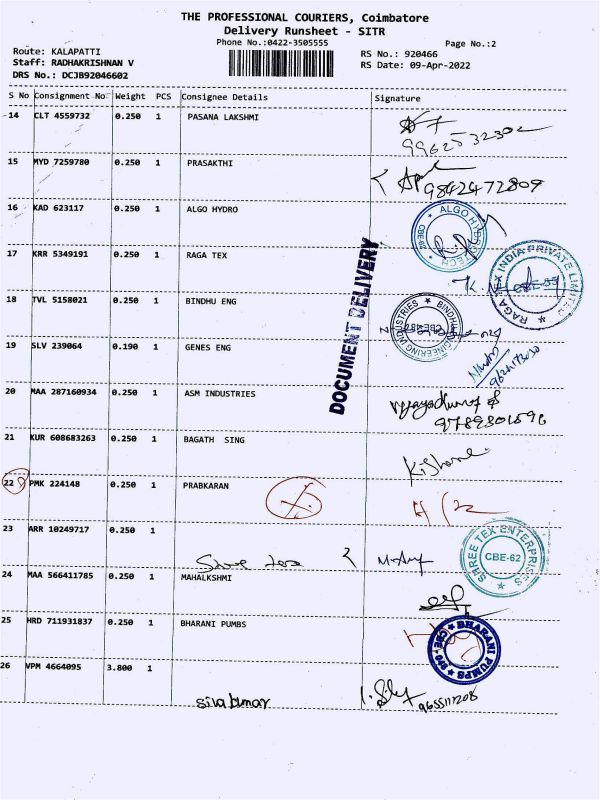 THE PROFESSIONAL COURIERS, Coimbatore
Delivery Runsheet - SITR
Phone No.:0422-3505555
Page No.:2
Route: KALAPATTI
Staff: RADHAKRISHNAN V
DRS No.: DCJB92046602
RS No.: 920466
RS Date: 09-Apr-2022
S No Consignment No Weight PCS Consignee Details Signature
14 CLT 4559732 0.250 1 PASANA LAKSHMI
9962532302
15 MYD 7259780 0.250 1 PRASAKTHI
9842472809
16 KAD 623117 0.250 1 ALGO HYDRO
ALGO HYDRO TECH
17 KRR 5349191 0.250 1 RAGA TEX
RAGA TEX INDIA PRIVATE LIMITED
18 TVL 5158021 0.250 1 BINDHU ENG
BINDHU ENGINEERING INDUSTRIES
DOCUMENT DELIVERY
19 SLV 239064 0.190 1 GENES ENG
20 MAA 287160934 0.250 1 ASM INDUSTRIES
9789301596
21 KUR 608683263 0.250 1 BAGATH SING
Kishore
22 PMK 224148 0.250 1 PRABKARAN
23 ARR 10249717 0.250 1
Shree tex
SHREE TEX ENTERPRISES
CBE-62
24 MAA 566411785 0.250 1 MAHALKSHMI
25 HRD 711931837 0.250 1 BHARANI PUMBS
BHARANI PUMPS
26 VPM 4664095 3.800 1
sivakumar
9655117208